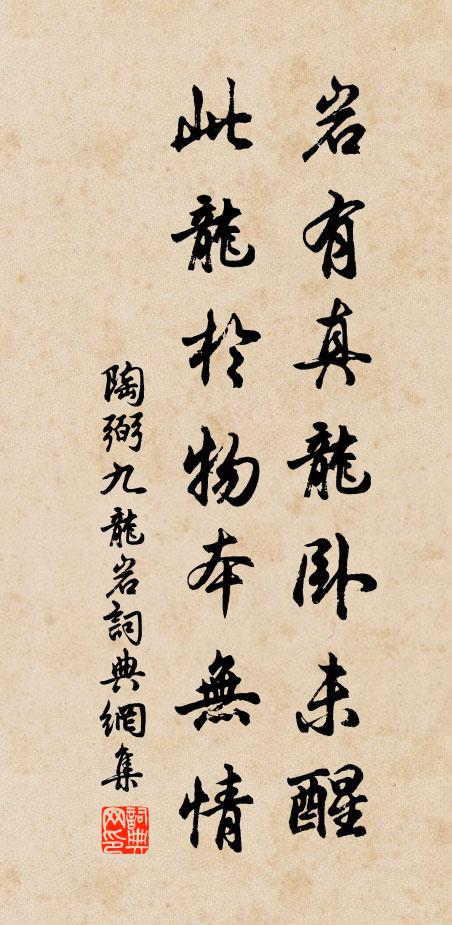 岩有真龍卧未醒
此龍於物本無情
陶弼九龍岩詞典網集
詞典网印